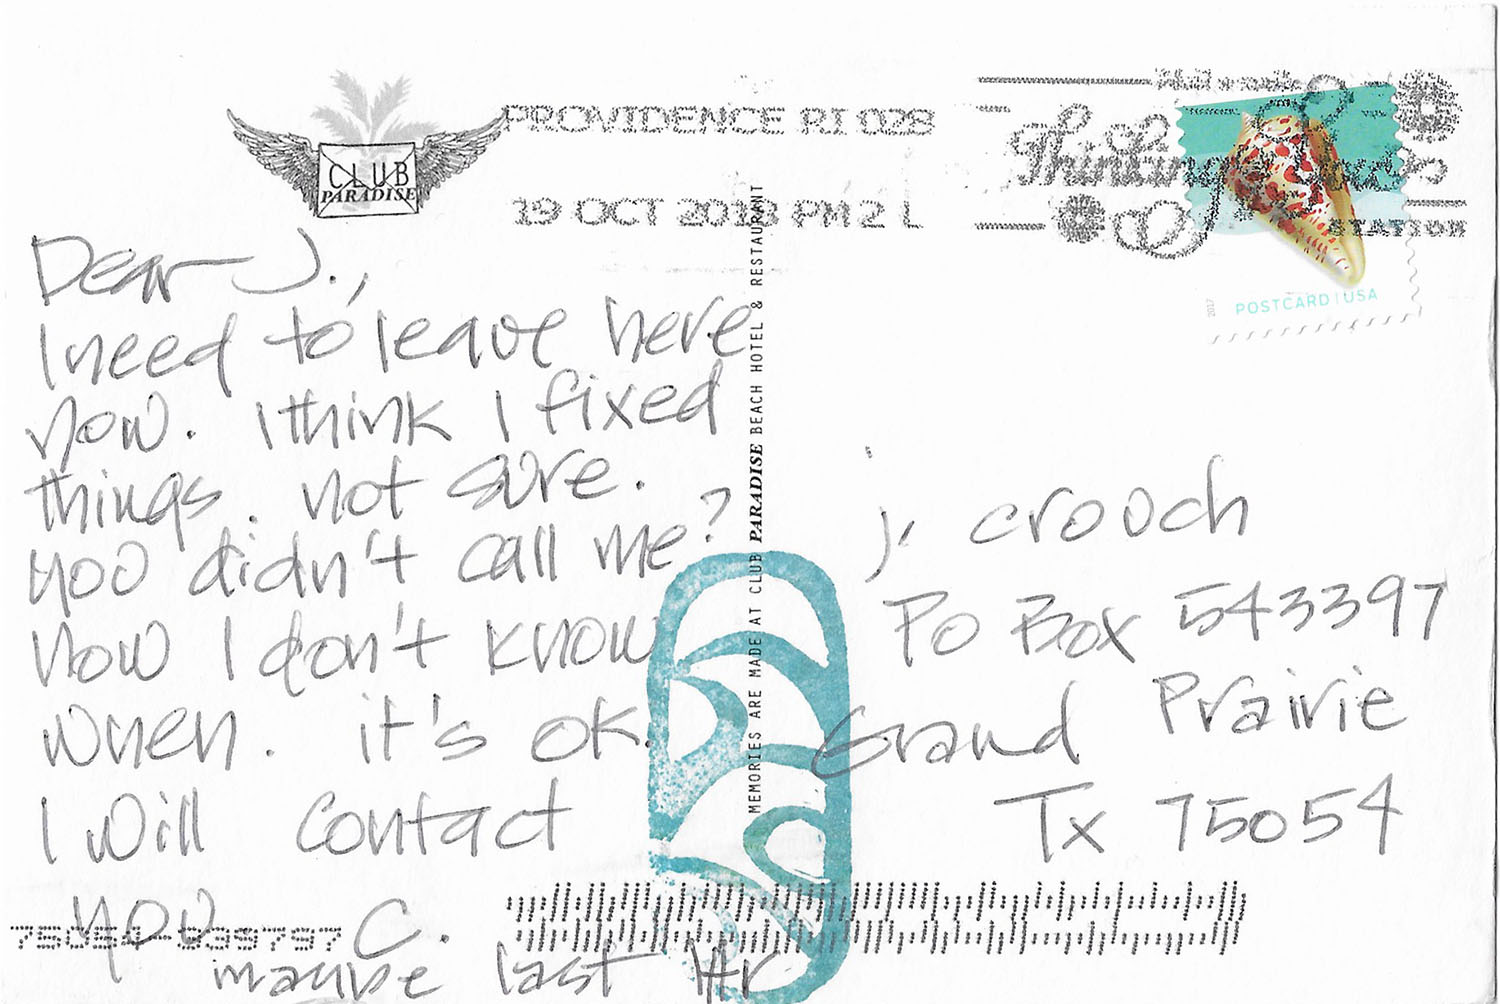 CLUB
PARADISE
PROVIDENCE RI 028
19 OCT 2018 PM 2 L
Thinking of You
STATION
2017
POSTCARD | USA
Dear J.,
I need to leave here
now. I think I fixed
things. not sure.
you didn't call me?
now I don't know
when. it's ok.
I will contact
you C.
maybe last ltr
MEMORIES ARE MADE AT CLUB PARADISE BEACH HOTEL & RESTAURANT
j. crouch
Po Box 543397
Grand Prairie
Tx 75054